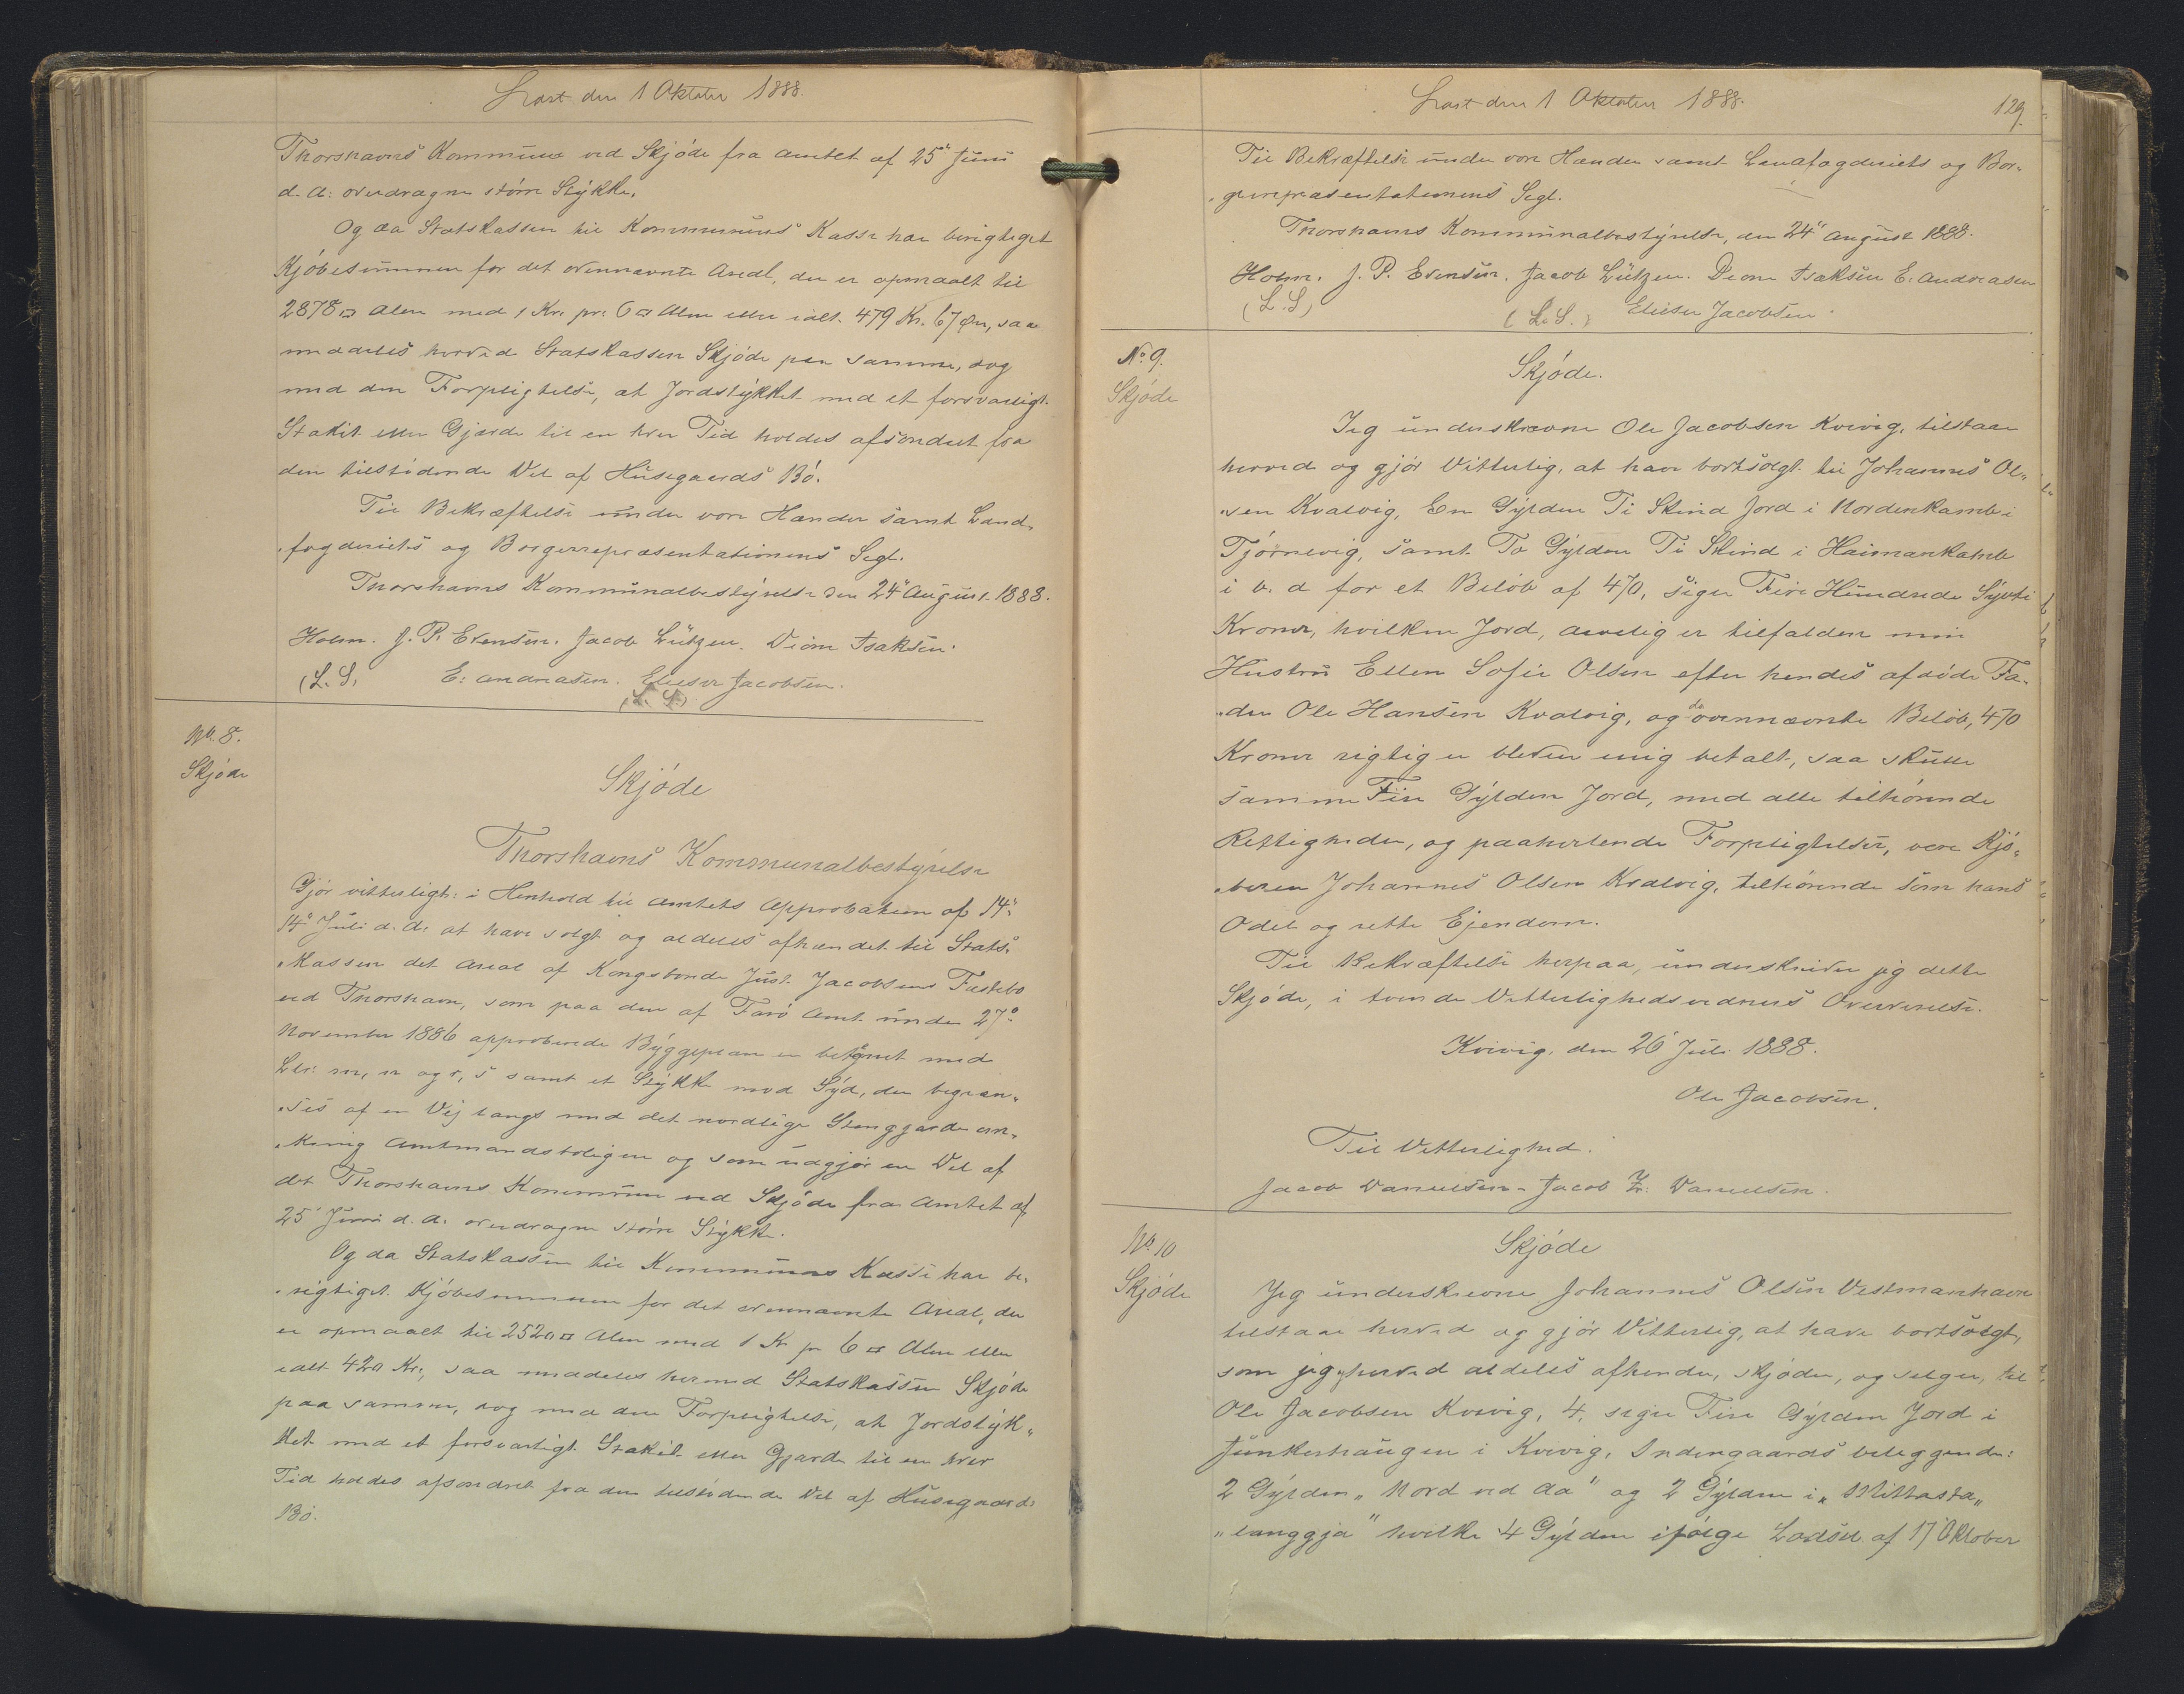 Læst den 1 Oktober 1888.
Thorshavns Kommune ved Skjöde fra Amtet af 25" Juni
d. A. overdragne större Stykke.
Og da Statskassen til Kommunens Kasse har berigtiget
Kjöbesummen for det ovennævnte Areal, der er opmaalt til
2878 □ Alen med 1 Kr. pr. 6 □ Alen eller ialt 479 Kr. 67 Öre, saa
meddeles herved Statskassen Skjöde paa samme, dog
med den Forpligtelse, at Jordstykket med et forsvarligt
Stakit eller Gjærde til en hver Tid holdes afsondret fra
den tilstödende Del af Husegaards Bö.
Til Bekræftelse under vore Hænder samt Land-
„fogderiets og Borgerrepræsentationens Segl.
Thorshavns Kommunalbestyrelse den 24" August 1888.
Holm. J. P. Evensen. Jacob Lützen. Diöne Isaksen.
(L. S. E. Andreasen. Elieser Jacobsen.
(L. S.)
No 8.
Skjöde
Skjöde
Thorshavns Kommunalbestyrelse
Gjör vitterligt: i Henhold til Amtets Approbation af 14"
14" Juli d. A. at have solgt og aldeles afhændet til Stats-
„kassen det Areal af Kongsbonde Just. Jacobsens Fæstebo
ved Thorshavn, som paa den af Færö Amt under 27"
November 1886 approberede Byggeplan er betegnet med
Ltr. m, n og r, s samt et Stykke mod Syd, der begræn-
„ses af en Vej langs med det nordlige Stengjærde om-
„kring Amtmandsboligen og som udgjör en Del af
det Thorshavns Kommune ved Skjöde fra Amtet af
25' Juni d. A. overdragne större Stykke.
Og da Statskassen til Kommunens Kasse har be-
„rigtiget Kjöbesummen for det ovennævnte Areal, der
er opmaalt til 2520 □ Alen med 1 Kr pr 6 □ Alen eller
ialt 420 Kr., saa meddeles hermed Statskassen Skjöde
paa samme, dog med den Forpligtelse, at Jordstyk-
ket med et forsvarligt Stakit eller Gjærde til en hver
Tid holdes afsondret fra den tilstödende Del af Husegaards
Bö.
Læst den 1 Oktober 1888.
129.
Til Bekræftelse under vore Hænder samt Landfogderiets og Bor-
„gerrepræsentationens Segl.
Thorshavns Kommunalbestyrelse, den 24" August 1888.
Holm. J. P. Evensen. Jacob Lützen. Diöne Isaksen E. Andreasen
(L. S.)
(L. S.) Elieser Jacobsen.
No 9.
Skjöde
Skjöde.
Jeg underskrevne Ole Jacobsen Kvivig, tilstaar
herved og gjör Vitterlig, at have bortsolgt til Johannes Ol-
„sen Kvalvig, En Gylden Ti Skind Jord i Nordenkambe i
Tjörnevig, samt To Gylden Ti Skind i Haimankambe
i b. d for et Belöb af 470, siger Fire Hundrede Syvti
Kroner, hvilken Jord, arvelig er tilfalden min
Hustru Ellen Sofie Olsen efter hendes afdöde Fa-
„der Ole Hansen Kvalvig, og da ovennævnte Belöb, 470
Kroner rigtig er bleven mig betalt, saa skulle
samme Fire Gylden Jord, med alle tilhörende
Rettigheder, og paahvilende Forpligtelser, være Kjö-
„beren Johannes Olsen Kvalvig, tilhörende som hans
Odel og rette Ejendom.
Til Bekræftelse herpaa, underskriver jeg dette
Skjöde, i tvende Vitterlighedsvidners Overværelse.
Kvivig, den 26 Juli 1888.
Ole Jacobsen.
Til Vitterlighed.
Jacob Danielsen - Jacob Danielsen.
No 10
Skjöde
Skjöde
Jeg underskrevne Johannes Olsen Vestmanhavn
tilstaar herved og gjör Vitterlig, at have bortsolgt,
som jeg herved aldeles afhender, skjöder, og sælger, til
Ole Jacobsen Kvivig, 4, siger Fire Gylden Jord i
Junkershaugen i Kvivig, Indengaards beliggende:
2 Gylden „Nord ved Aa" og 2 Gylden i „Mittasta„
„langgja" hvilke 4 Gylden ifölge Lodsel af 17 Oktober